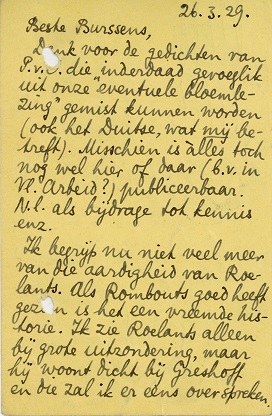 26.3.29.
Beste Burssens,
Dank voor de gedichten van
P.v.O. die inderdaad gevoeglik
uit onze "eventuele bloemle-
zing" gemist kunnen worden
(ook het Duitse, wat mij be-
treft). Misschien is alles toch
nog wel hier of daar (b.v. in
Vl. Arbeid?) publiceerbaar.
N.l. als bijdrage tot kennis
enz.
Ik begrijp nu niet veel meer
van die aardigheid van Roe-
lants. Als Rombouts goed heeft
gezien is het een vreemde his-
torie. Ik zie Roelants alleen
bij grote uitzondering, maar
hij woont dicht bij Greshoff
en die zal ik er eens over spreken.